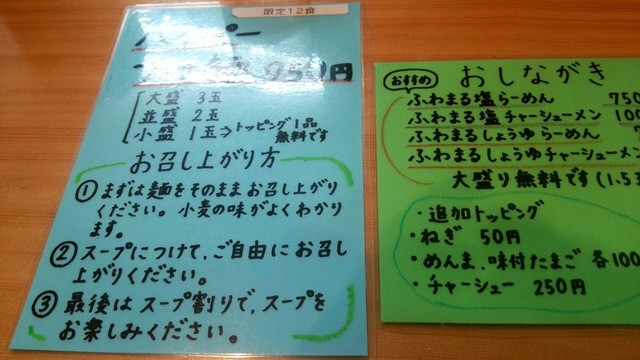 限定12食
950円
大盛 3玉
並盛 2玉
小盛 1玉⇒トッピング1品
無料です
お召し上がり方
① まずは麺をそのままお召し上がり
ください。小麦の味がよくわかり
ます。
② スープにつけて、ご自由にお召し
上がりください。
③ 最後はスープ割りで、スープを
お楽しみください。
おすすめ
おしながき
ふわまる塩らーめん 750
ふわまる塩チャーシューメン 100
ふわまるしょうゆらーめん
ふわまるしょうゆチャーシューメン
大盛り無料です(1.5玉
・追加トッピング
・ねぎ 50円
・めんま、味付たまご 各100
・チャーシュー 250円